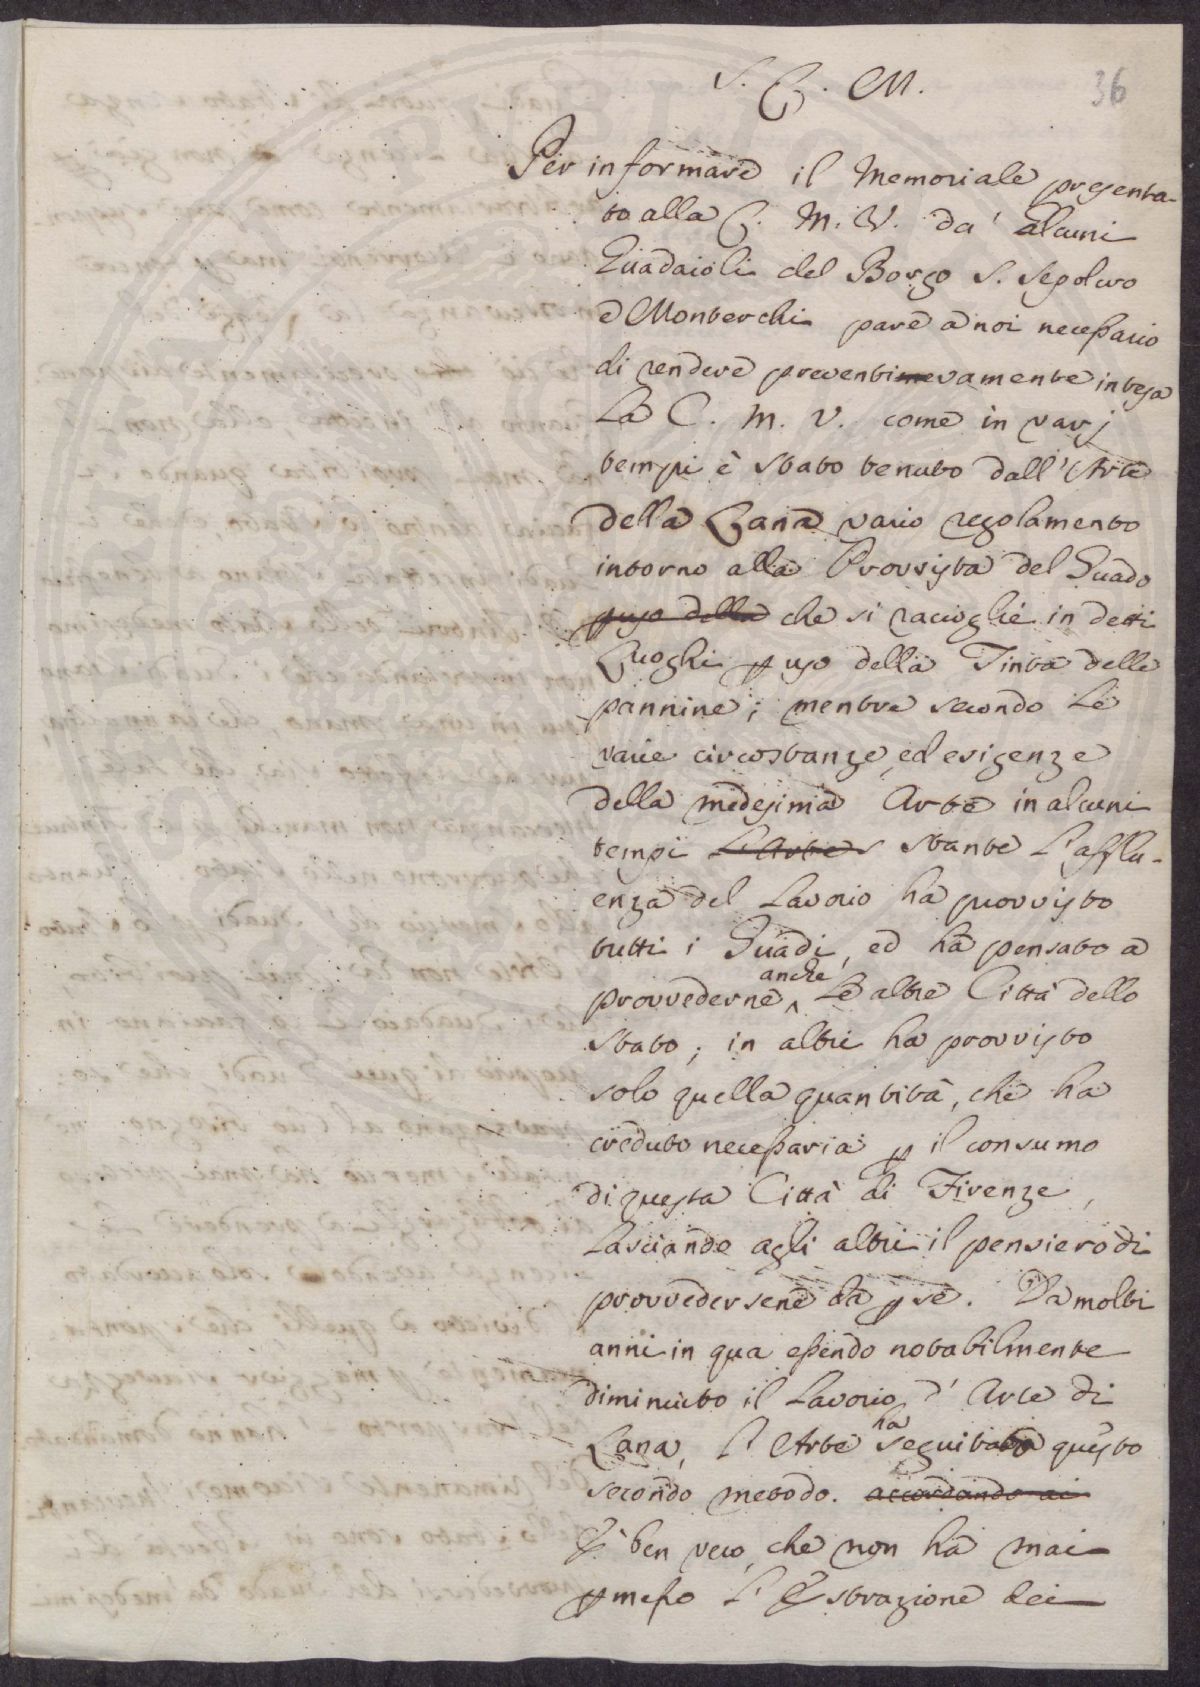 S. C. M.
36
Per informare il Memoriale presenta-
to alla C. M. V. da' alcuni
Guadaioli del Borgo S. Sepolcro
e Monterchi pare a noi necessario
di rendere preventivamente intesa
La C. M. V. come in varj
tempi è stato tenuto dall'Arte
della Lana vario regolamento
intorno alla Provvista del Guado
p uso della che si raccoglie in detti
Luoghi p uso della Tinta delle
pannine; mentre secondo Le
varie circostanze, ed esigenze
della medesima Arte in alcuni
tempi L'Arte stante L'afflu-
enza del Lavorio ha provvisto
tutti i Guadi, ed ha pensato a
provvederne anche Le altre Città dello
Stato; in altri ha provvisto
solo quella quantità, che ha
creduto necessaria p il consumo
di questa Città di Firenze,
Lasciando agli altri il pensiero di
provvedersene da p se. Da molti
anni in qua essendo notabilmente
diminuito il Lavorio d'Arte di
Lana, L'Arte ha seguitato questo
secondo metodo. accordando ai
E' ben vero, che non ha mai
pmesso L'Estrazione dei